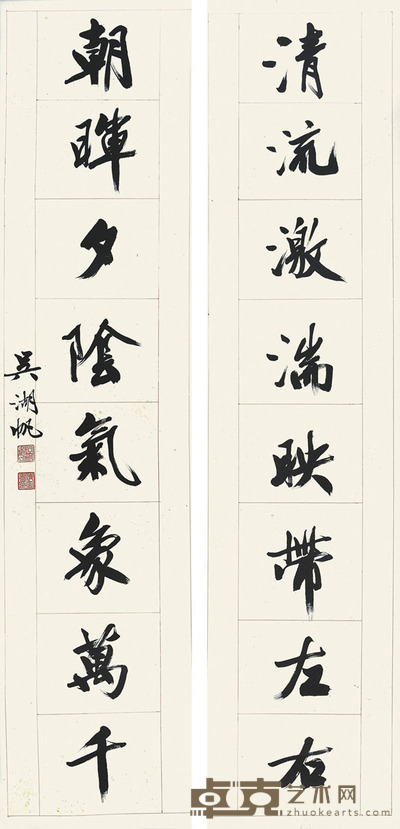 清流激湍映帶左右
朝暉夕陰氣象萬千
吳湖帆
卓克艺术网
zhuokearts.com